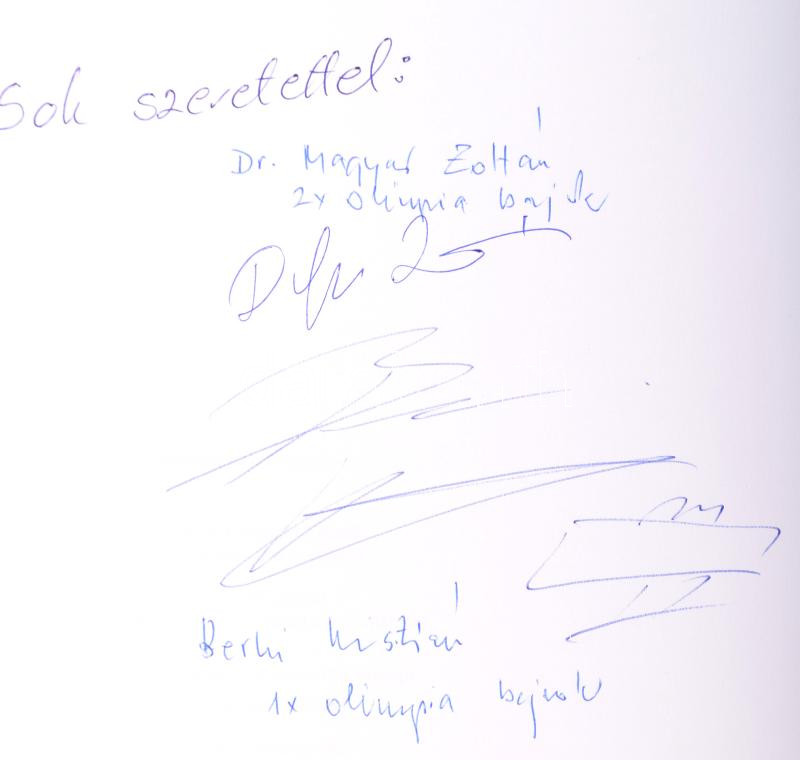 Sok szeretettel:
Dr. Magyar Zoltán
2x olimpia bajnok
Berki Krisztián
1x olimpia bajnok